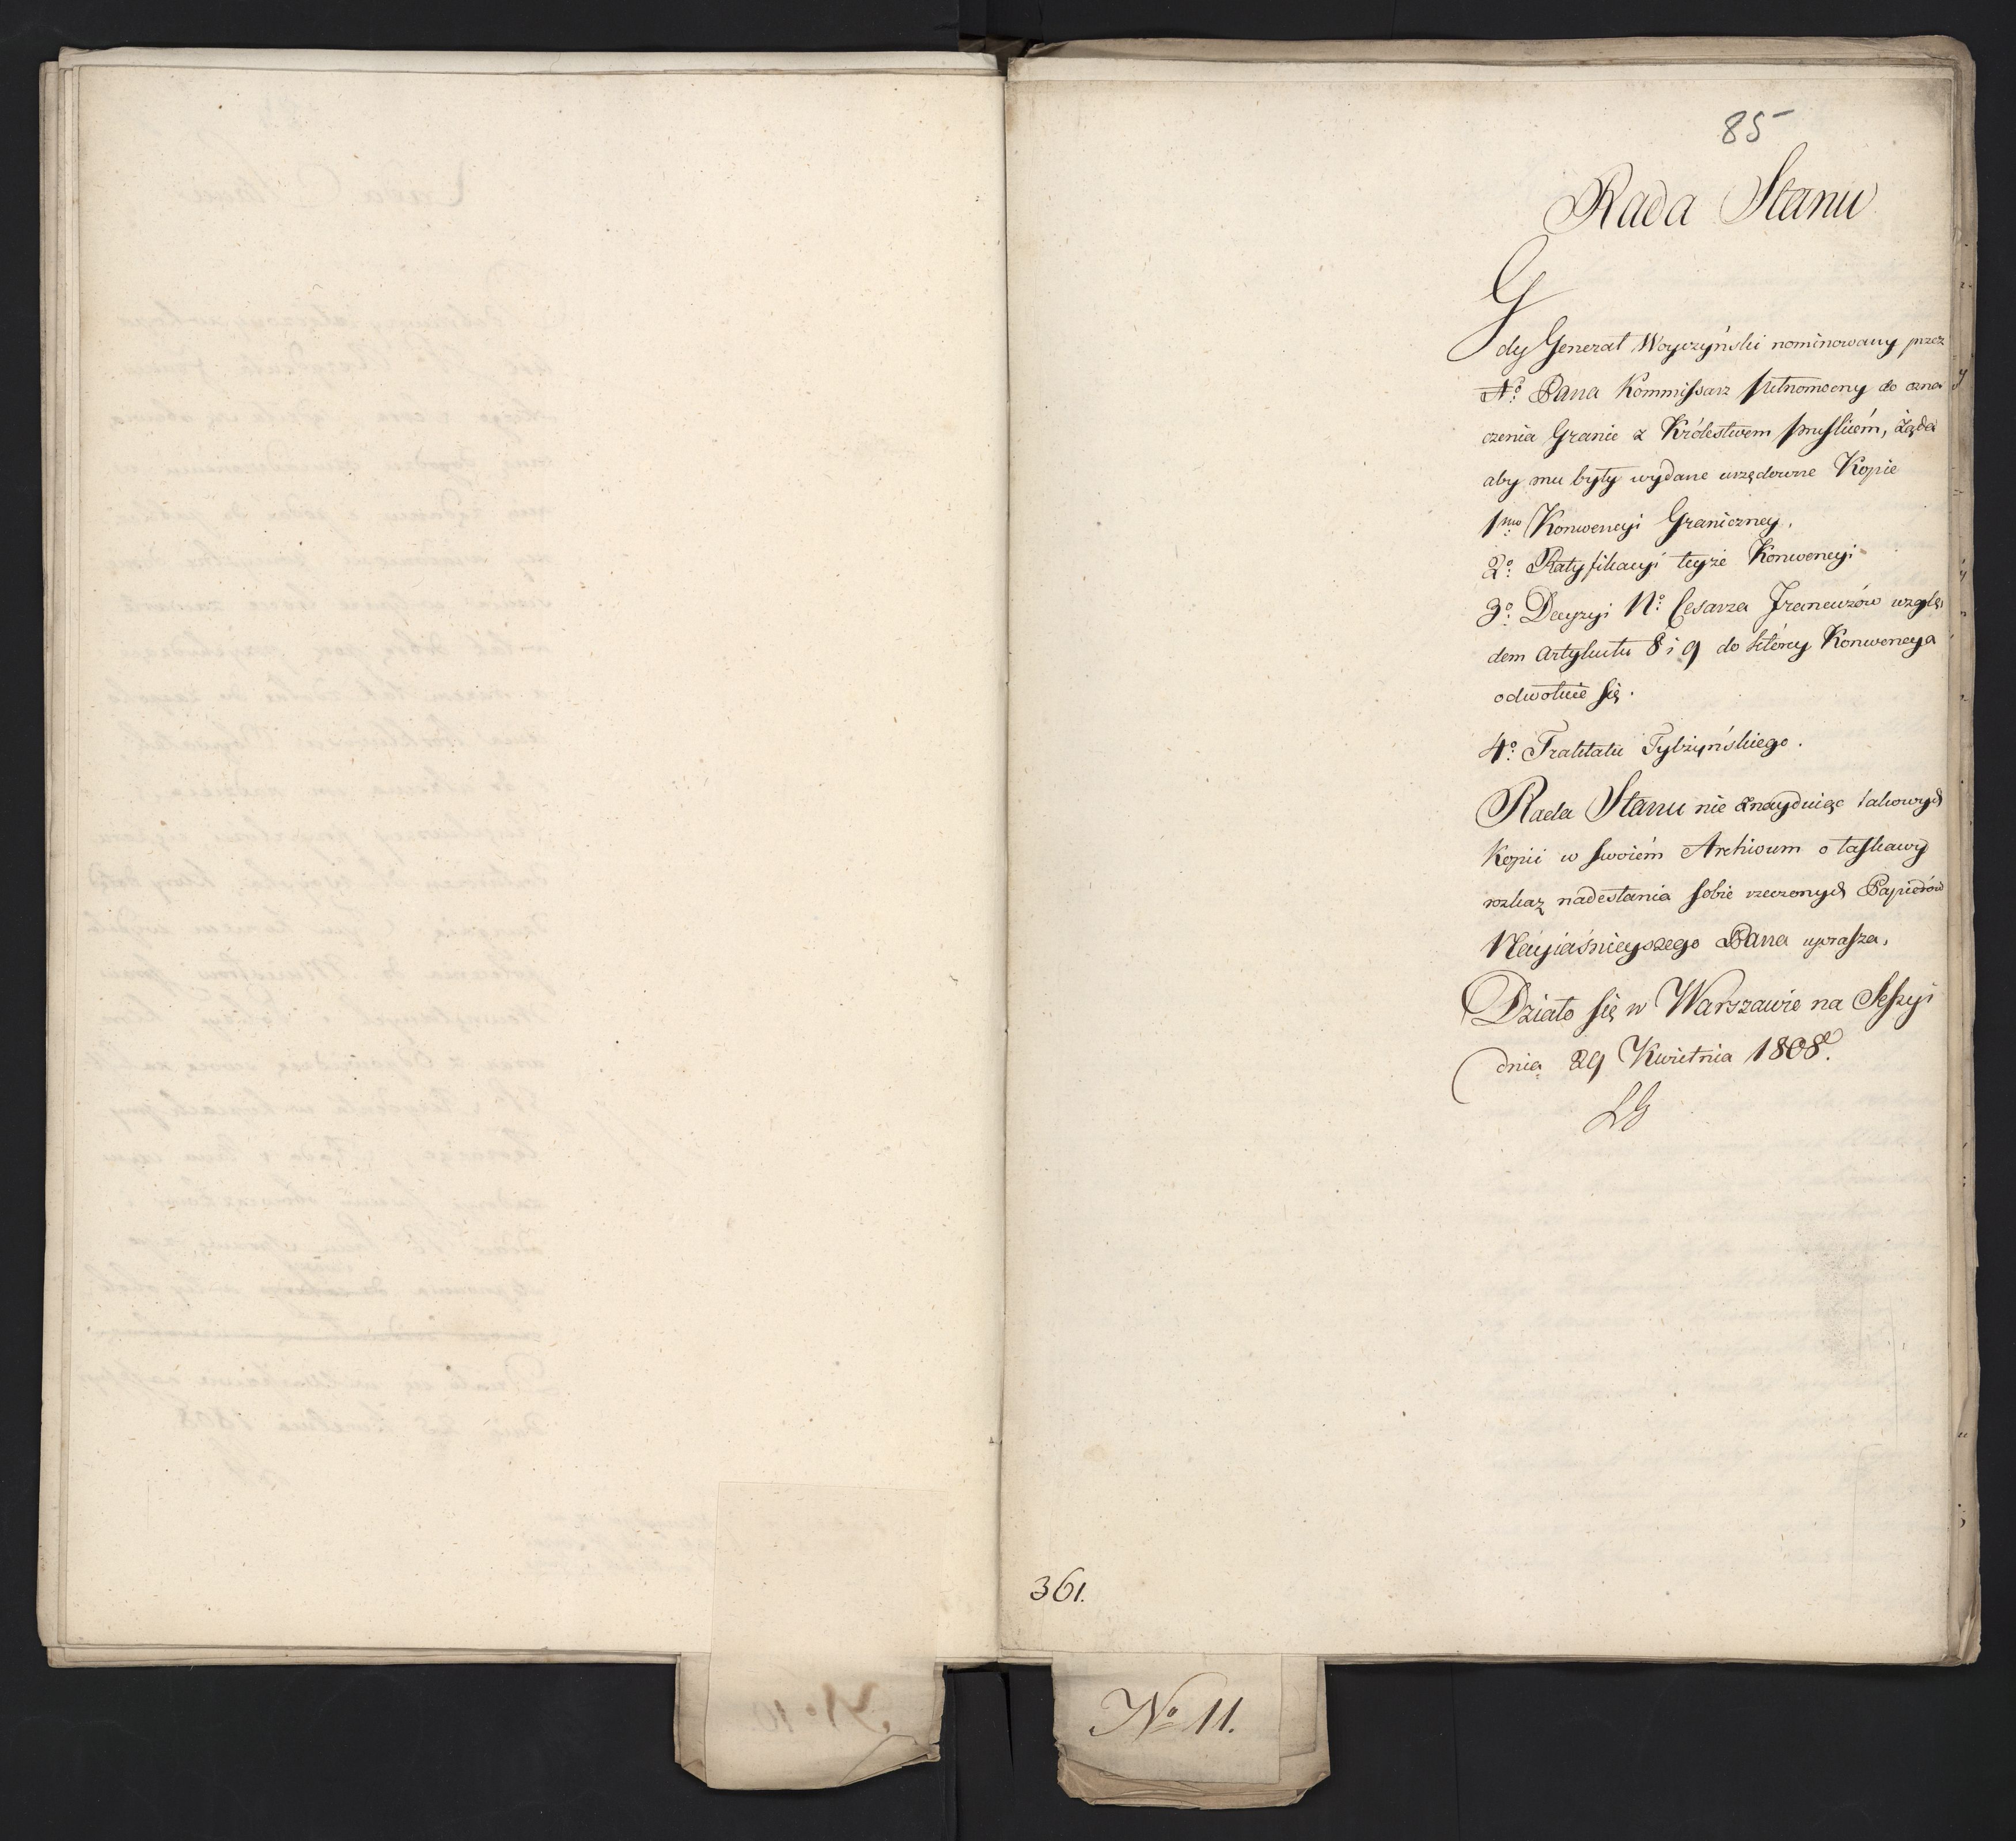 85
Rada Stanu
Gdy Generał Woyczyński nominowany przez
No: Pana Kommissarz pełnomocny do ozna
czenia Granic z Królestwem pruskiém, żąda
aby mu były wydane urzędowne Kopie
1mo: Konwencyi Graniczney,
2o: Ratyfikacyi teyże Konwencyi
3o: Decyzyi No: Cesarza Francuzów wzglę
dem Artykułu 8 i 9 do którey Konwencya
odwołuie się.
4o: Traktatu Tylżyńskiego.
Rada Stanu nie znayduiąc takowych
Kopii w swoiém Archiwum o łaskawy
rozkaz nadesłania sobie rzeczonych Papierów
Nayiaśnieyszego Pana uprasza,
Działo się w Warszawie na Sessyi
dnia 29 Kwietnia 1808.
361.
No 11.